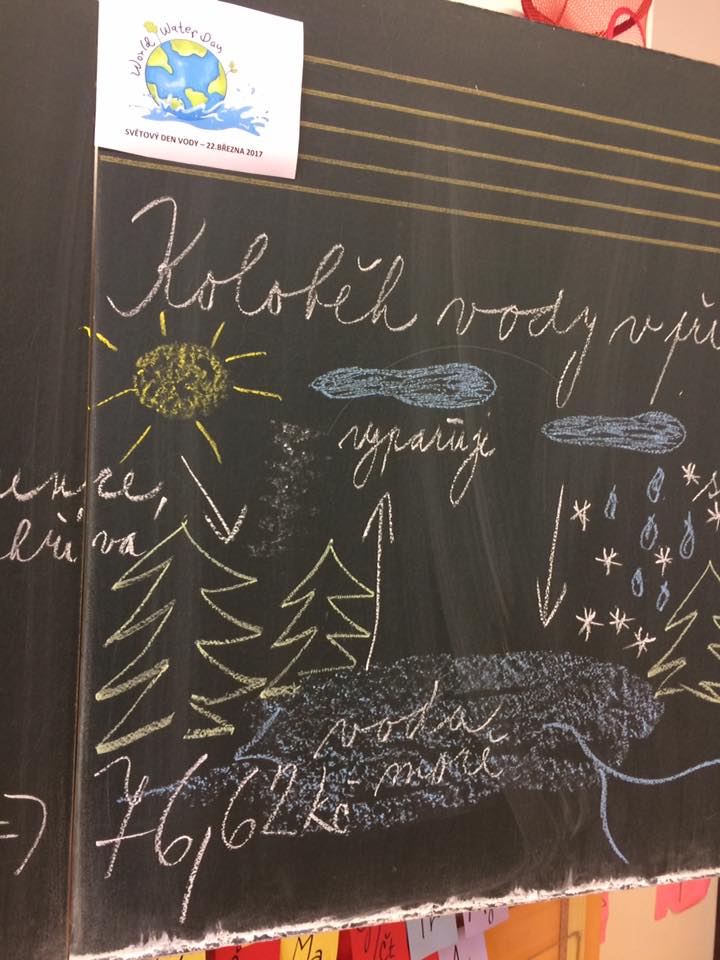 World Water Day
SVĚTOVÝ DEN VODY – 22.BŘEZNA 2017
Koloběh vody v pří
vypařuje
voda
moře
=> 76,62 kč
Ma
Čt